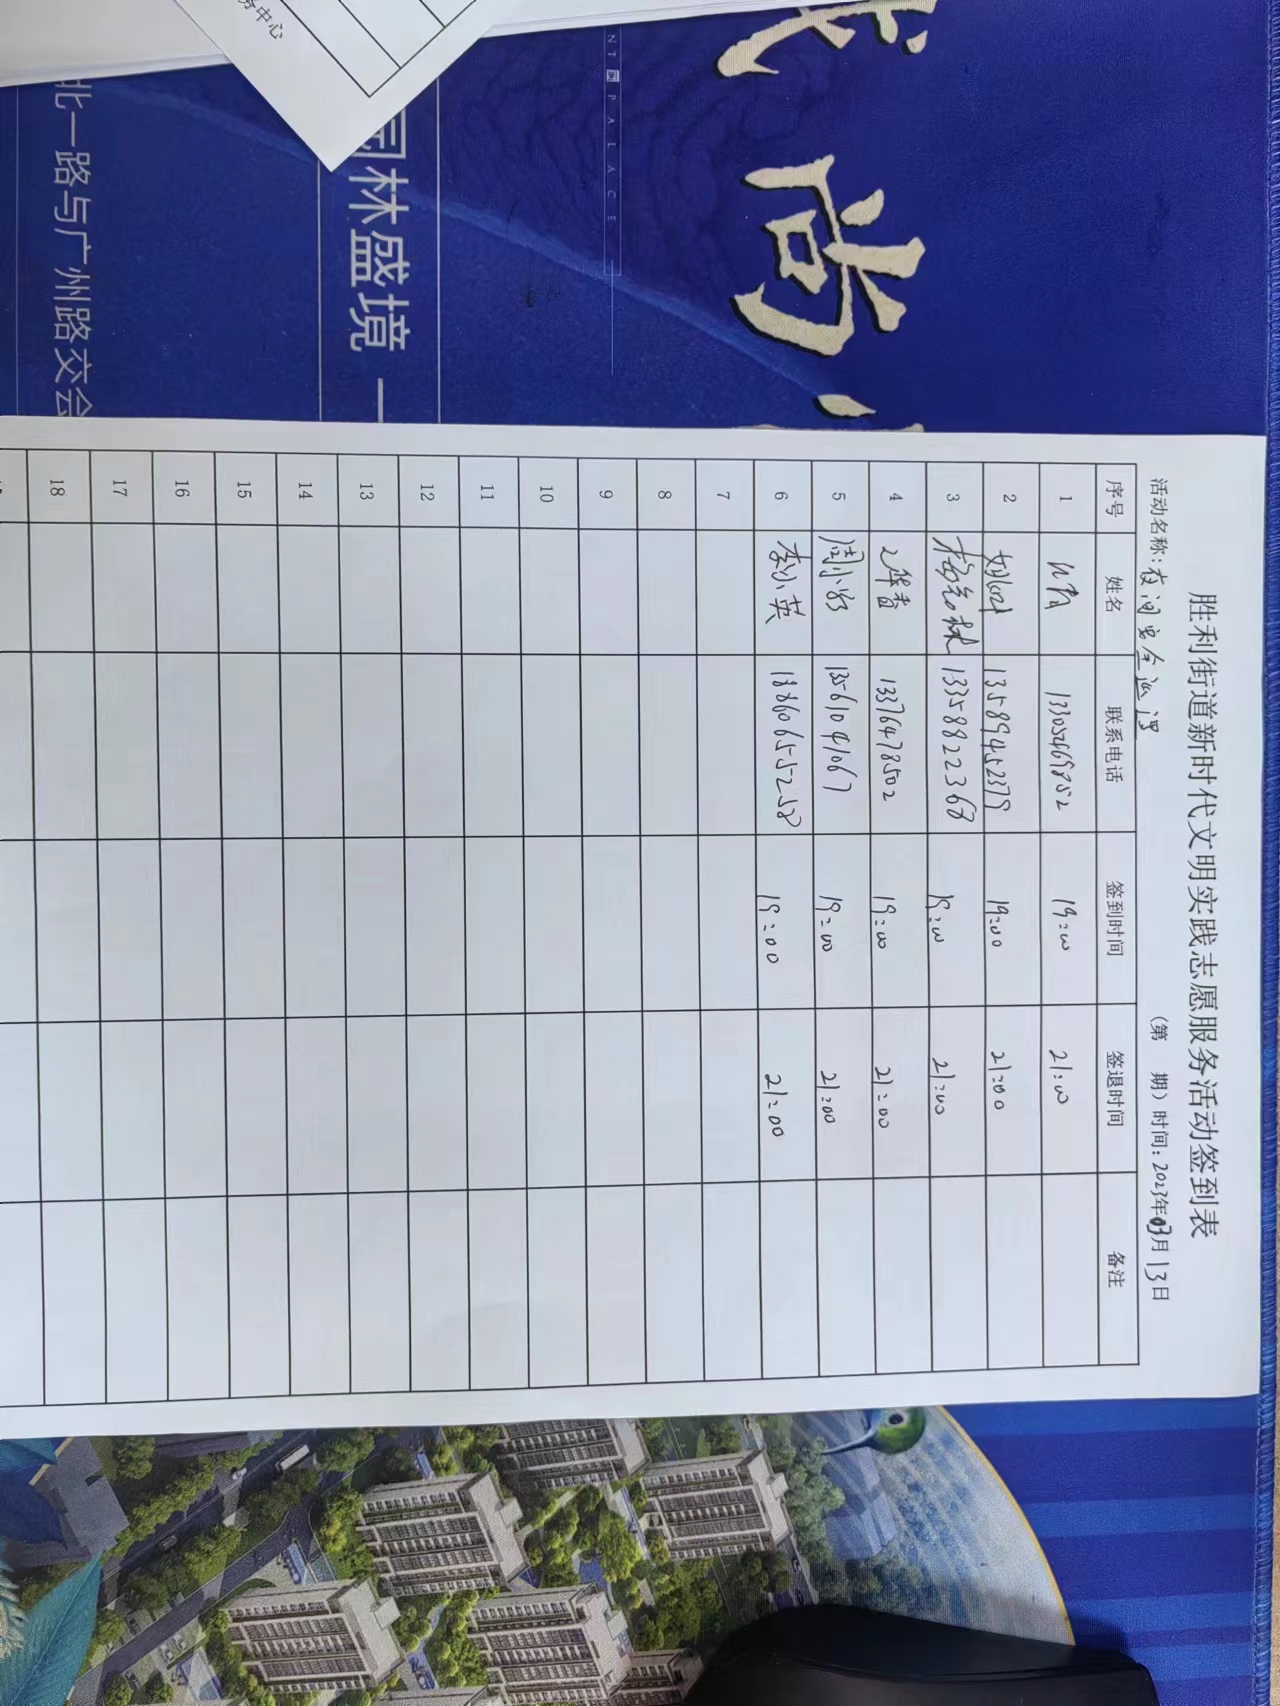 胜利街道新时代文明实践志愿服务活动签到表
活动名称：夜间安全巡逻 （第 期）时间：2023年03月13日
序号 姓名 联系电话 签到时间 签退时间 备注
1 13305469852 19:00 21:00
2 13589452379 19:00 21:00
3 13358822368 19:00 21:00
4 13376478502 19:00 21:00
5 周小 13561041067 19:00 21:00
6 李小英 18860655258 19:00 21:00
7
8
9
10
11
12
13
14
15
16
17
18
尚
NT PALACE
园林盛境
北一路与广州路交会
务中心